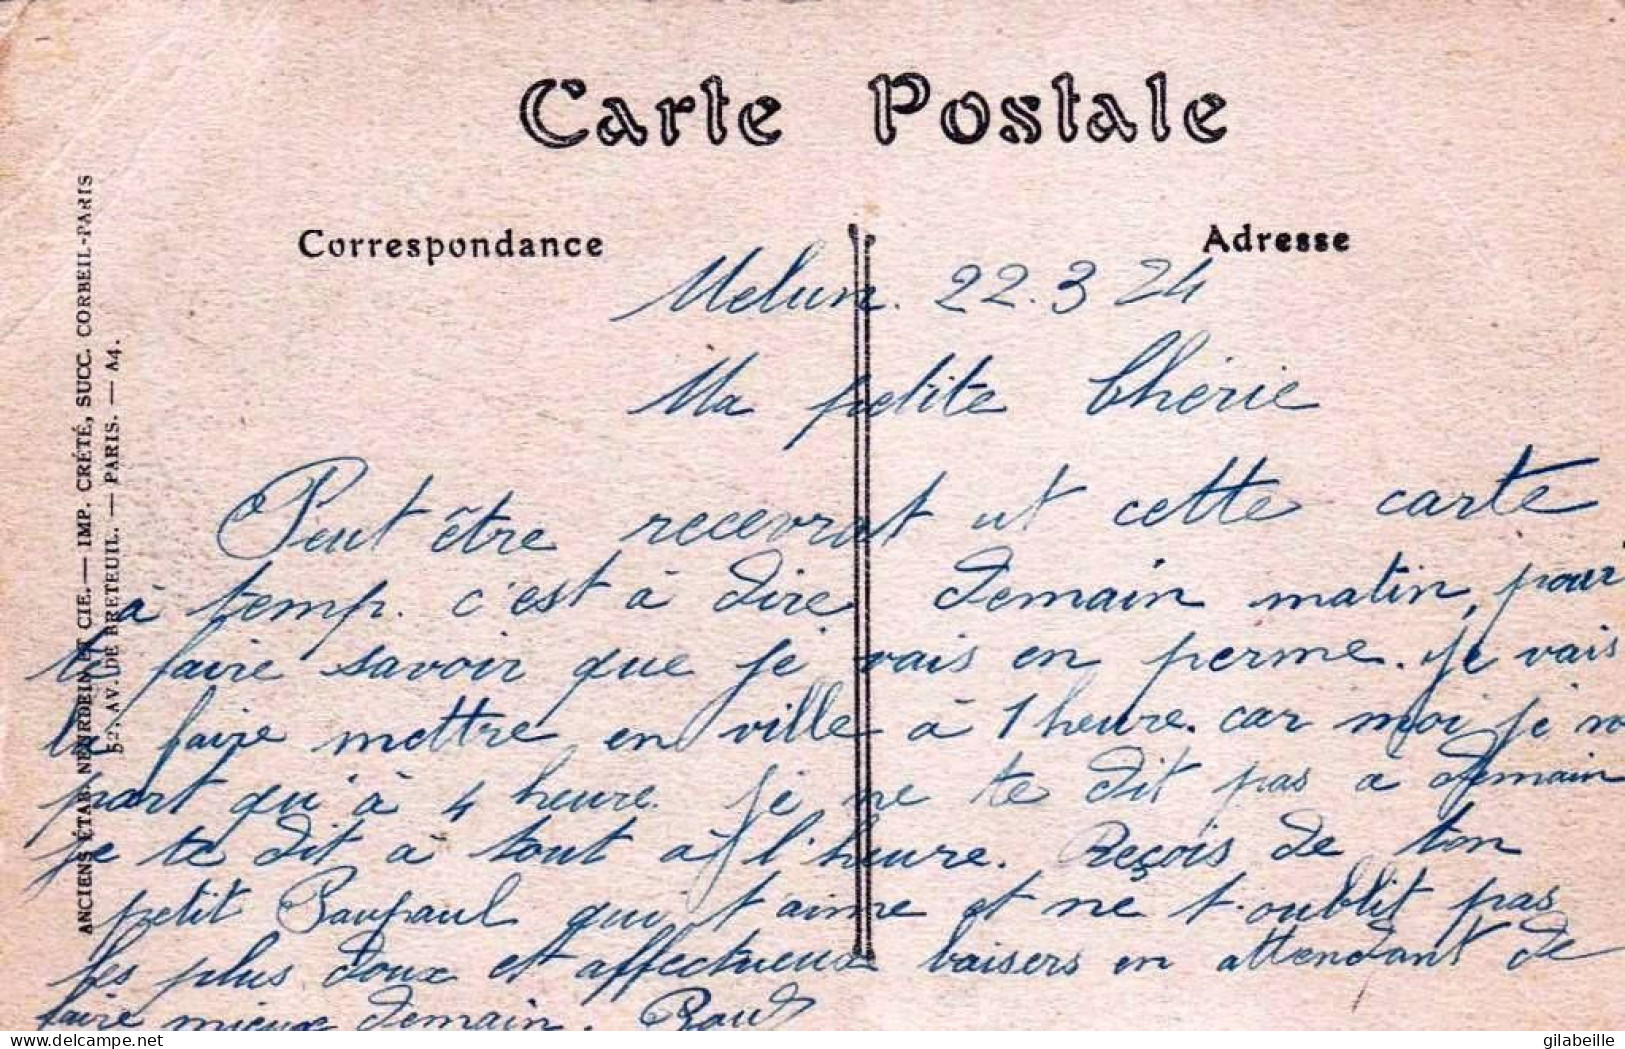 Carte Postale
Correspondance
Adresse
Melun. 22.3 24
Ma petite Chérie
Peut être recevrat ut cette carte
à temp. c'est à dire demain matin, pour
te faire savoir que je vais en perme. Je vais
la faire mettre en ville à 1 heure. car moi je ne
part qu'à 4 heure. Je ne te dit pas à demain
je te dit à tout à l'heure. Reçois de ton
petit Paupaul qui t'aime et ne t'oublit pas
les plus doux et affectueux baisers en attendant de
faire mieux demain. Paul
ANCIENS ÉTAB. NEURDEIN ET CIE. — IMP. CRÉTÉ, SUCC. CORBEIL-PARIS
52, AV. DE BRETEUIL. — PARIS. — A4.
delcampe.net
gilabeille